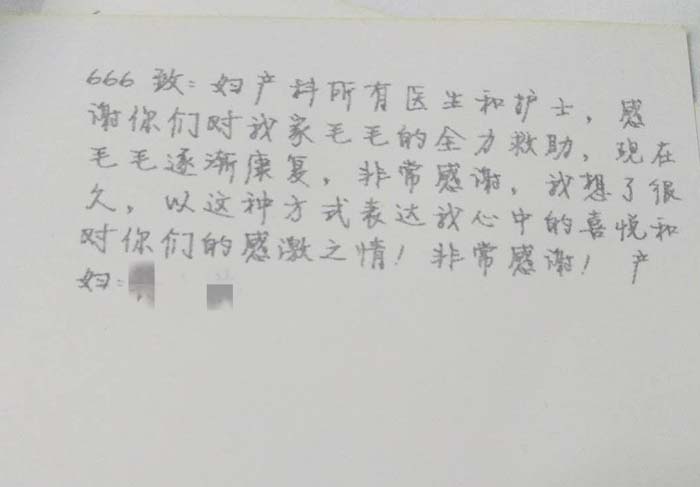 666 致:妇产科所有医生和护士,感
谢你们对我家毛毛的全力救助,现在
毛毛逐渐康复,非常感谢,我想了很
久,以这种方式表达我心中的喜悦和
对你们的感激之情!非常感谢!产
妇: